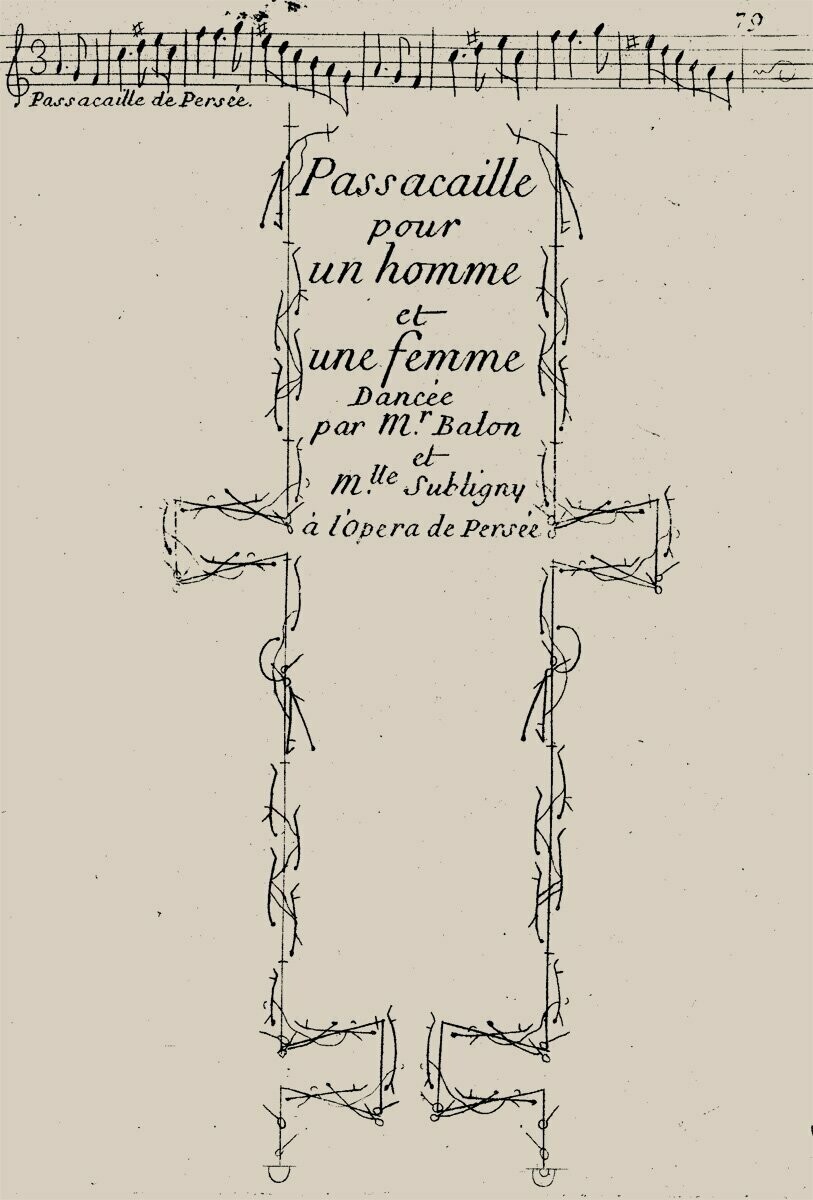 79
3
Passacaille de Persée.
Passacaille
pour
un homme
et
une femme
Dancée
par M.r Balon
et
M.lle Subligny
à l'Opera de Persée